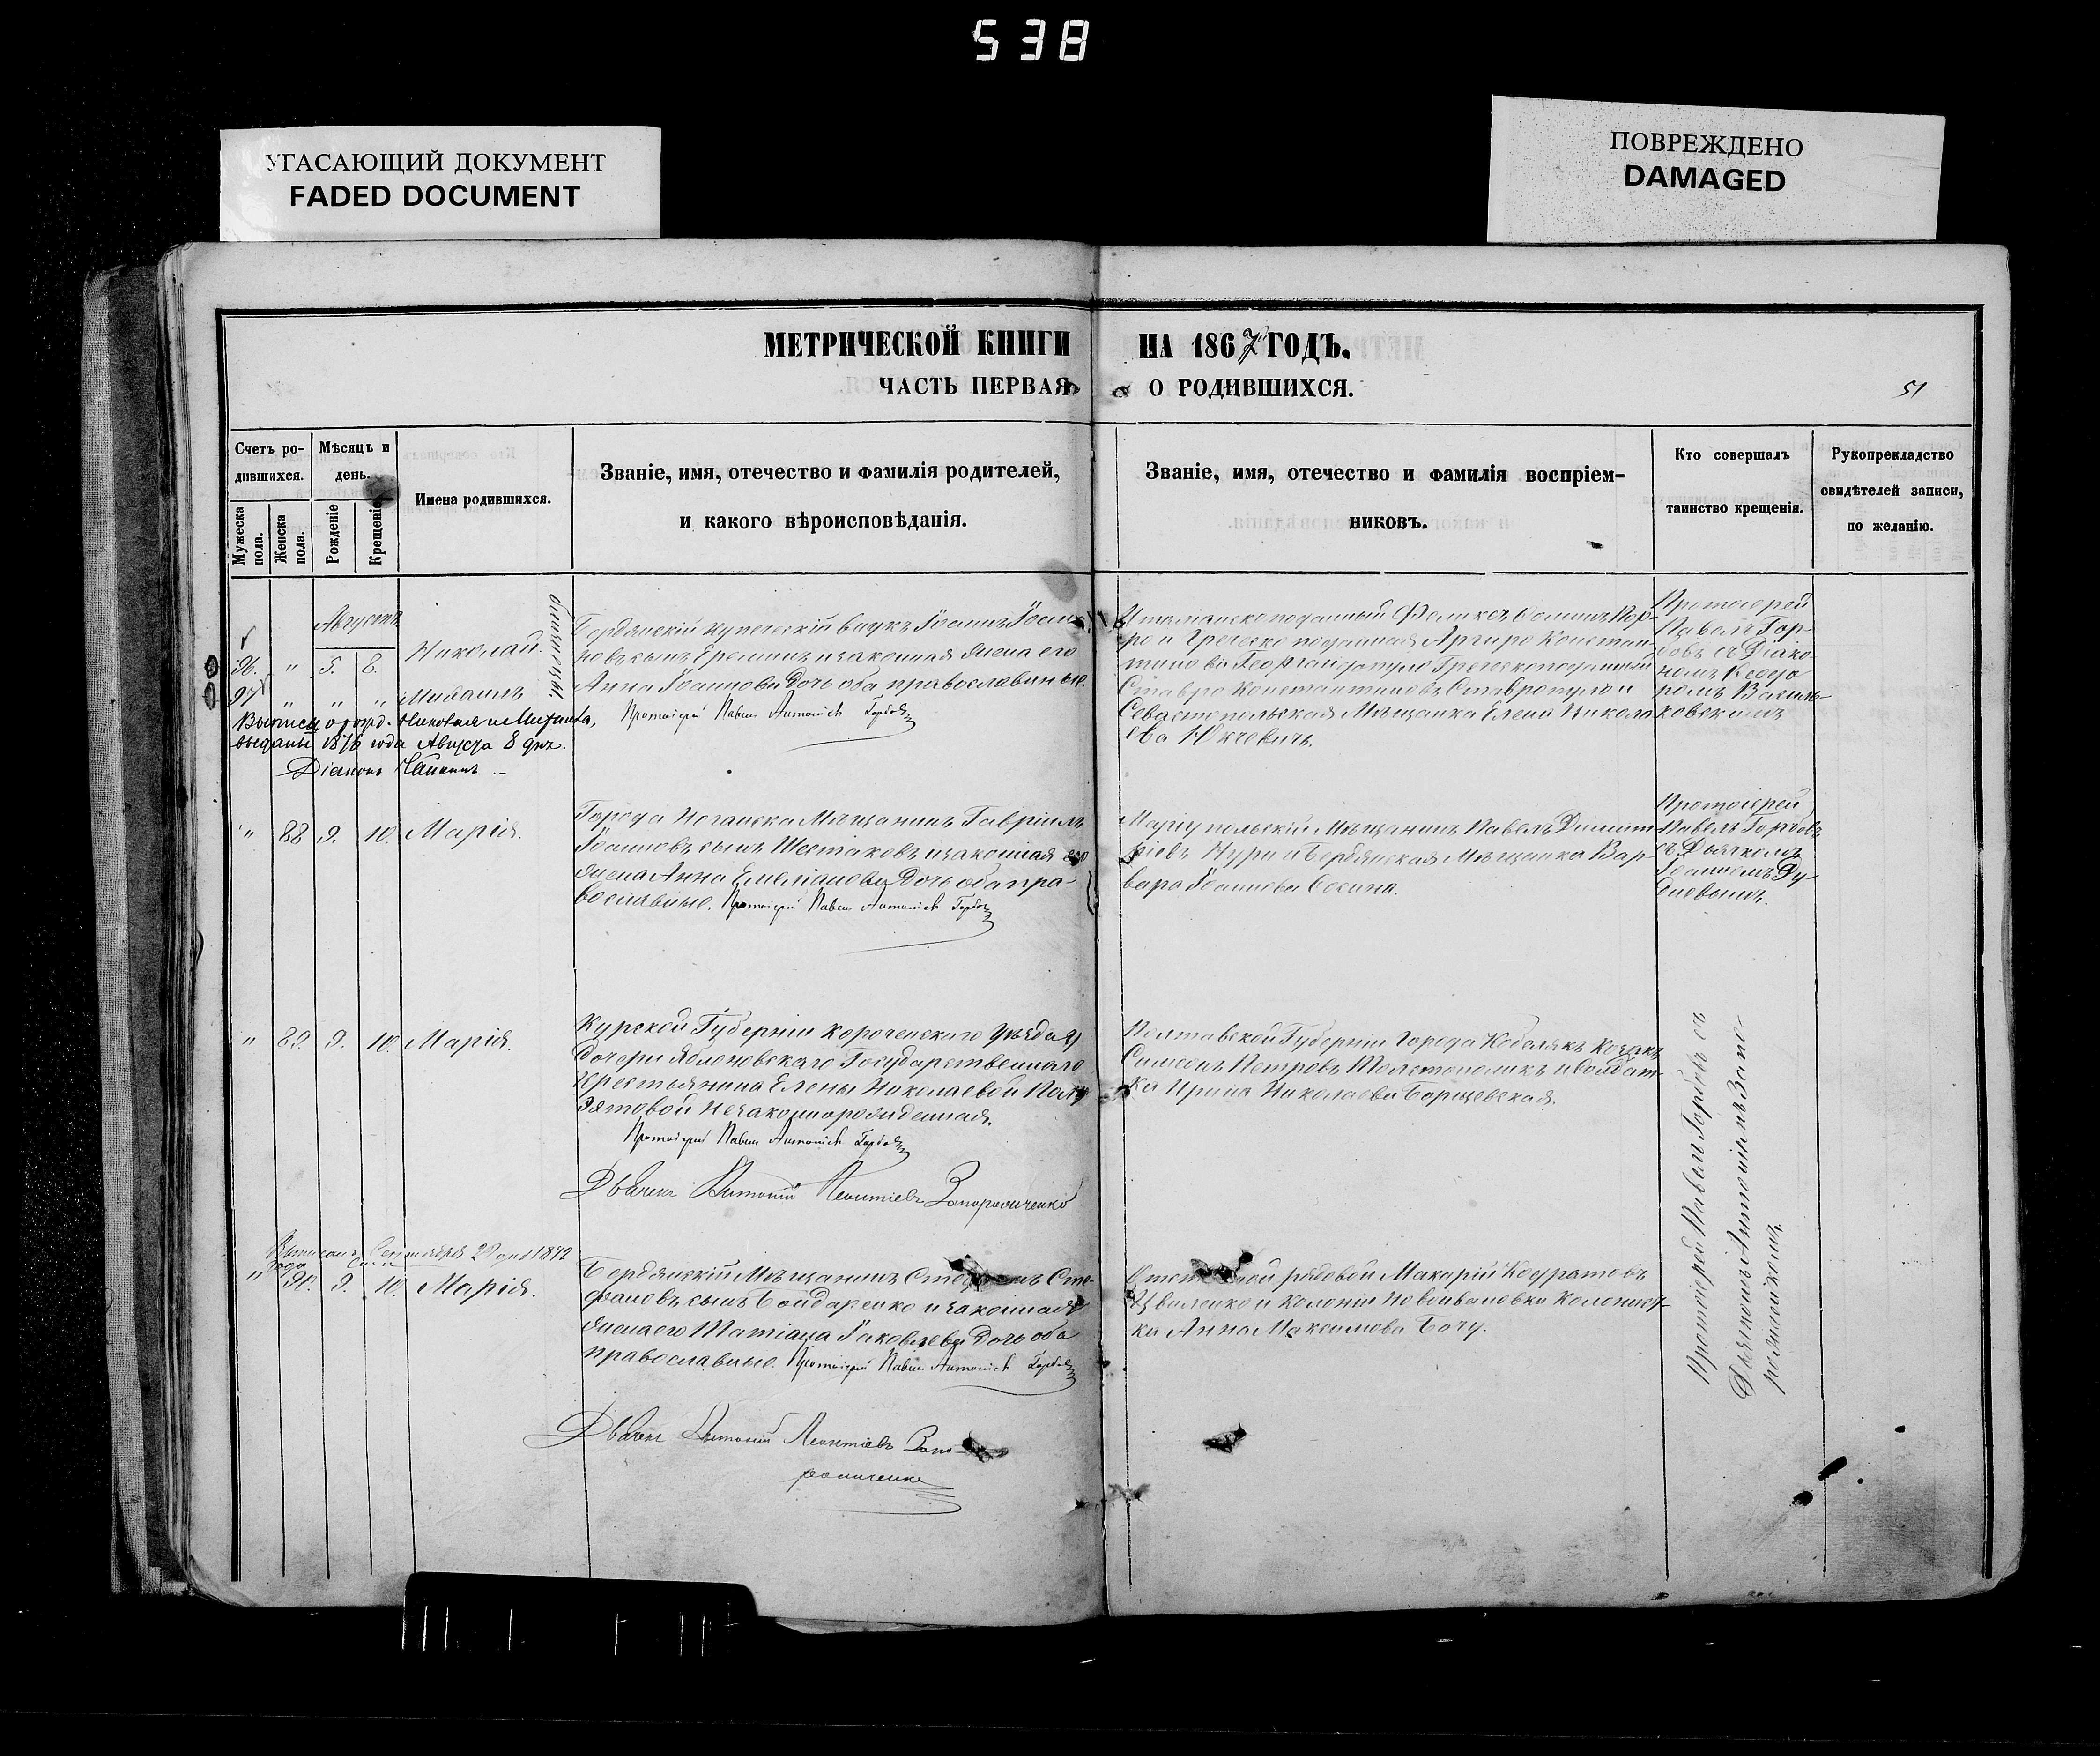 538
УГАСАЮЩИЙ ДОКУМЕНТ
FADED DOCUMENT
ПОВРЕЖДЕНО
DAMAGED
МЕТРИЧЕСКОЙ КНИГИ НА 1867 ГОДЪ.
ЧАСТЬ ПЕРВАЯ О РОДИВШИХСЯ.
51
Счетъ ро-
дившихся.
Мужеска пола.
Женска пола.
Мѣсяцъ и
день.
Рожденіе
Крещеніе
Имена родившихся.
Званіе, имя, отечество и фамилія родителей,
и какого вѣроисповѣданія.
Званіе, имя, отечество и фамилія воспріем-
никовъ.
Кто совершалъ
таинство крещенія.
Рукоприкладство
свидѣтелей записи,
по желанію.
Августъ
96. " 5. 8. Николай.
97 " " " Михаилъ
близнецы
Выписи о рожд. Николая и Михаила,
выданы 1876 года Августа 8 дня.
Діаконъ
Бердянскій купеческій внукъ Іоаннъ Іоан-
новъ сынъ Ереминъ и законная жена его
Анна Іоаннова дочь оба православные.
Протоіерей Павелъ Антоніевъ Горбовъ
Италіанскоподанный Феликсъ
и Греческо поданная Аргиро Констан-
тинова Греческоподанный
Ставро Константиновъ Ставропуло и
Севастопольская Мѣщанка Елена Никола-
ева
Протоіерей
Павелъ Гор-
бовъ съ Діако-
номъ Ѳеодо
ромъ Василь-
ковскимъ
" 88 9. 10. Марія.
Города Ногайска Мѣщанинъ Гавріилъ
Іоанновъ сынъ Шестаковъ и законная его
жена Анна Емеліанова дочь оба пра-
вославные. Протоіерей Павелъ Антоніевъ Горбовъ
Маріупольскій Мѣщанинъ Павелъ Димит-
ріевъ и Бердянская Мѣщанка Вар-
вара Іоаннова
Протоіерей
Павелъ Горбовъ
съ Дьячкомъ
Іоанномъ
" 89. 9. 10. Марія.
Курской Губерніи Короченскаго Уѣзда
дочери Яблоновскаго Государственнаго
крестьянина Елены Николаевой
незаконнорожденная.
Протоіерей Павелъ Антоніевъ Горбовъ
Дьячекъ Антоній Леонтіевъ Запорожченко
Полтавской Губерніи города Кобелякъ козакъ
Симеонъ Петровъ и солдат-
ка Ирина Николаева Борщевская.
Протоіерей Павелъ Горбовъ съ
Дьячкомъ Антоніемъ Запо-
рожченкомъ.
Сентября 1872
года
" 90. 9. 10. Марія.
Бердянскій Мѣщанинъ Сте-
фановъ сынъ Бондаренко и законная
жена его Татіана Іаковлева дочь оба
православные. Протоіерей Павелъ Антоніевъ Горбовъ
Дьячекъ Антоній Леонтіевъ Запо-
рожченко
рядовой Макарій
и Колоніи Новоивановки колонист-
ка Анна Максимова